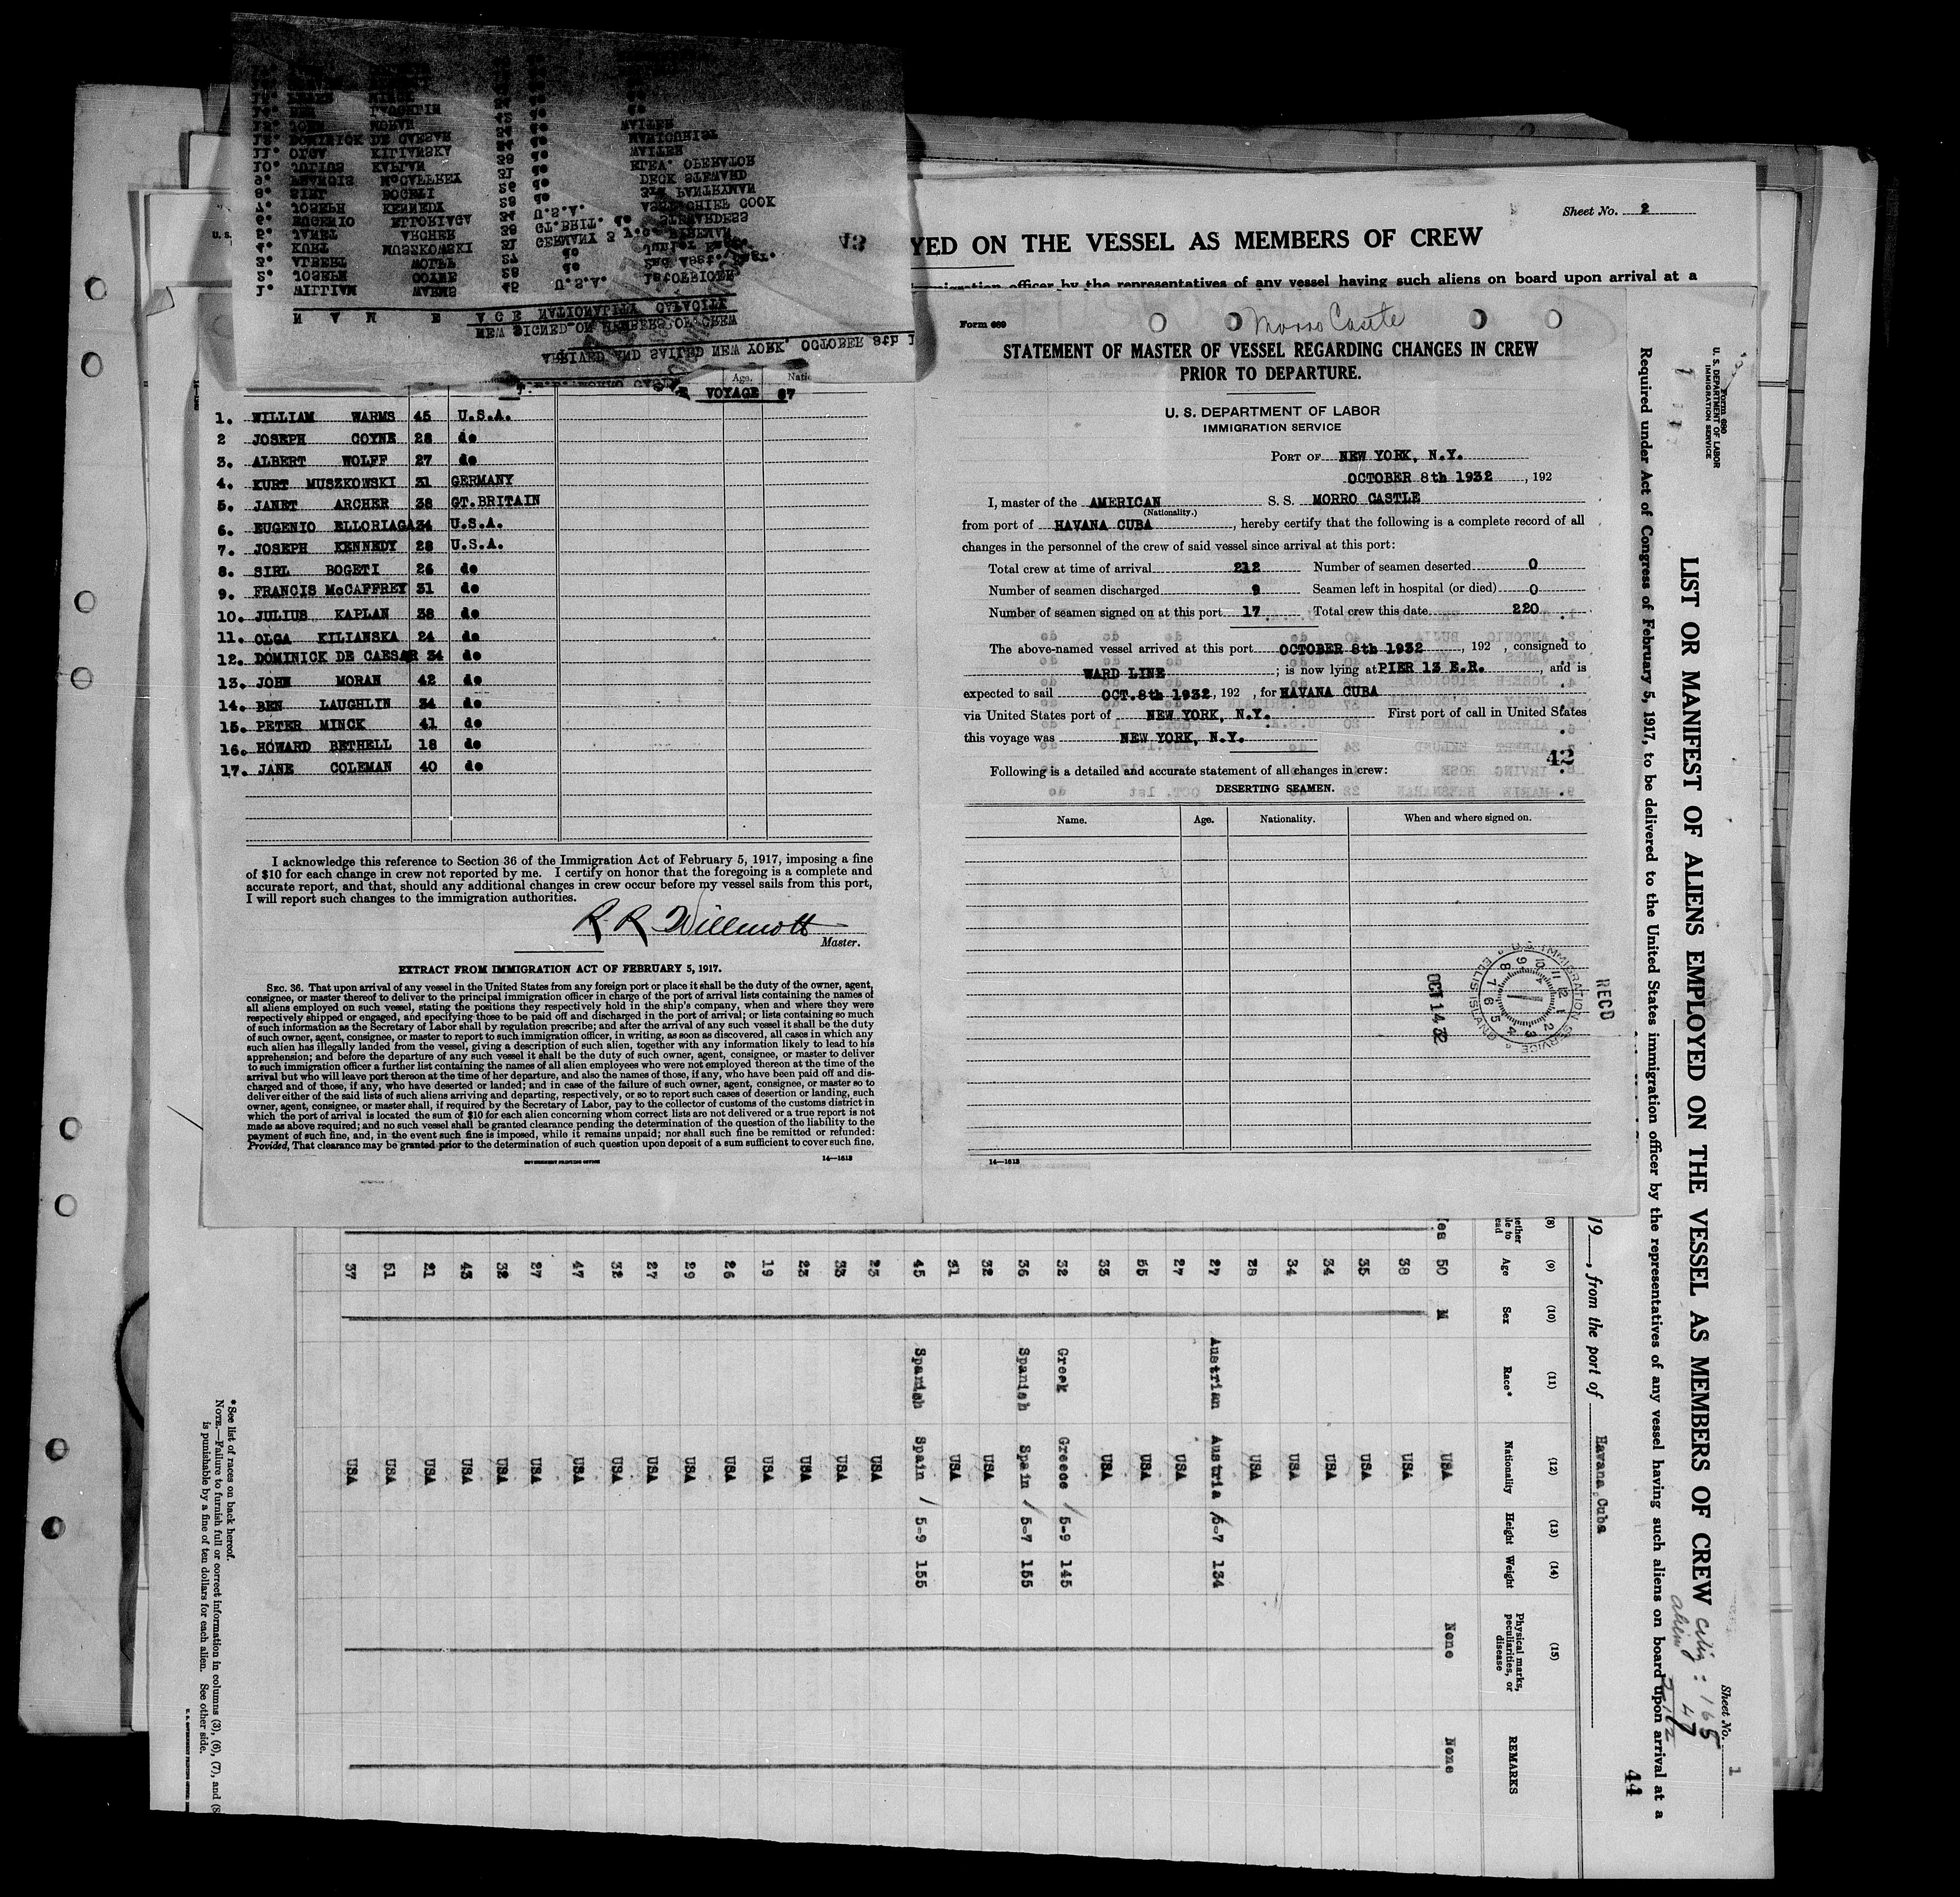 Sheet No. 2
YED ON THE VESSEL AS MEMBERS OF CREW
immigration officer by the representatives of any vessel having such aliens on board upon arrival at a
43
ARRIVED AND SAILED NEW YORK. OCTOBER 8th
NEW SIGNED ON MEMBERS OF CREW
N A M E AGE NATIONALITY CAPACITY
1. WILLIAM WARMS 45 U.S.A. 1st OFFICER
2. JOSEPH COYNE 28 do
3. ALBERT WOLFF 27 do
4. KURT MUSZKOWSKI 31 GERMANY
5. JANET ARCHER 38 GT.BRIT. STEWARDESS
6. EUGENIO ELLORIAGA 34 U.S.A. ASST CHIEF COOK
7. JOSEPH KENNEDY 28 do 3rd PANTRYMAN
8. SIRL BOGETI 26 do DECK STEWARD
9. FRANCIS McCAFFREY 31 do ELEV. OPERATOR
10. JULIUS KAPLAN 38 do WAITER
11. OLGA KILIANSKA 24 do MANICURIST
12. DOMINICK DE CAESAR 34 do WAITER
13. JOHN MORAN 42 do
Age.
VOYAGE 67
1. WILLIAM WARMS 45 U.S.A.
2 JOSEPH COYNE 28 do
3. ALBERT WOLFF 27 do
4. KURT MUSZKOWSKI 31 GERMANY
5. JANET ARCHER 38 GT.BRITAIN
6. EUGENIO ELLORIAGA 34 U.S.A.
7. JOSEPH KENNEDY 28 U.S.A.
8. SIRL BOGETI 26 do
9. FRANCIS McCAFFREY 31 do
10. JULIUS KAPLAN 38 do
11. OLGA KILIANSKA 24 do
12. DOMINICK DE CAESAR 34 do
13. JOHN MORAN 42 do
14. BEN LAUGHLIN 34 do
15. PETER MINCK 41 do
16. HOWARD BETHELL 18 do
17. JANE COLEMAN 40 do
I acknowledge this reference to Section 36 of the Immigration Act of February 5, 1917, imposing a fine
of $10 for each change in crew not reported by me. I certify on honor that the foregoing is a complete and
accurate report, and that, should any additional changes in crew occur before my vessel sails from this port,
I will report such changes to the immigration authorities.
R R Willmott
Master.
EXTRACT FROM IMMIGRATION ACT OF FEBRUARY 5, 1917.
SEC. 36. That upon arrival of any vessel in the United States from any foreign port or place it shall be the duty of the owner, agent,
consignee, or master thereof to deliver to the principal immigration officer in charge of the port of arrival lists containing the names of
all aliens employed on such vessel, stating the positions they respectively hold in the ship's company, when and where they were
respectively shipped or engaged, and specifying those to be paid off and discharged in the port of arrival; or lists containing so much
of such information as the Secretary of Labor shall by regulation prescribe; and after the arrival of any such vessel it shall be the duty
of such owner, agent, consignee, or master to report to such immigration officer, in writing, as soon as discovered, all cases in which any
such alien has illegally landed from the vessel, giving a description of such alien, together with any information likely to lead to his
apprehension; and before the departure of any such vessel it shall be the duty of such owner, agent, consignee, or master to deliver
to such immigration officer a further list containing the names of all alien employees who were not employed thereon at the time of the
arrival but who will leave port thereon at the time of her departure, and also the names of those, if any, who have been paid off and dis-
charged and of those, if any, who have deserted or landed; and in case of the failure of such owner, agent, consignee, or master so to
deliver either of the said lists of such aliens arriving and departing, respectively, or so to report such cases of desertion or landing, such
owner, agent, consignee, or master shall, if required by the Secretary of Labor, pay to the collector of customs of the customs district in
which the port of arrival is located the sum of $10 for each alien concerning whom correct lists are not delivered or a true report is not
made as above required; and no such vessel shall be granted clearance pending the determination of the question of the liability to the
payment of such fine, and, in the event such fine is imposed, while it remains unpaid; nor shall such fine be remitted or refunded:
Provided, That clearance may be granted prior to the determination of such question upon deposit of a sum sufficient to cover such fine.
GOVERNMENT PRINTING OFFICE
14—1613
Form 689
Morro Castle
STATEMENT OF MASTER OF VESSEL REGARDING CHANGES IN CREW
PRIOR TO DEPARTURE.
U. S. DEPARTMENT OF LABOR
IMMIGRATION SERVICE
PORT OF NEW YORK, N.Y.
OCTOBER 8th 1932, 192
I, master of the AMERICAN S. S. MORRO CASTLE
(Nationality.)
from port of HAVANA CUBA, hereby certify that the following is a complete record of all
changes in the personnel of the crew of said vessel since arrival at this port:
Total crew at time of arrival 212 Number of seamen deserted 0
Number of seamen discharged 9 Seamen left in hospital (or died) 0
Number of seamen signed on at this port 17 Total crew this date 220
The above-named vessel arrived at this port OCTOBER 8th 1932, 192 , consigned to
WARD LINE ; is now lying at PIER 13 E.R. , and is
expected to sail OCT. 8th 1932, 192 , for HAVANA CUBA
via United States port of NEW YORK, N.Y. First port of call in United States
this voyage was NEW YORK, N.Y.
42
Following is a detailed and accurate statement of all changes in crew:
DESERTING SEAMEN.
Name. Age. Nationality. When and where signed on.
RECD
U.S. IMMIGRATION SERVICE ELLIS ISLAND
OCT 14 32
14—1613
Form 680
U. S. DEPARTMENT OF LABOR
IMMIGRATION SERVICE
Sheet No. 1
LIST OR MANIFEST OF ALIENS EMPLOYED ON THE VESSEL AS MEMBERS OF CREW
Citiz: 165
alien 47
Required under Act of Congress of February 5, 1917, to be delivered to the United States immigration officer by the representatives of any vessel having such aliens on board upon arrival at a
44
19 , from the port of Havana Cuba
(8) (9) (10) (11) (12) (13) (14) (15)
Age Sex Race* Nationality Height Weight Physical marks, peculiarities, or disease REMARKS
Yes 50 M USA None None
38 USA
35 USA
34 USA
34 USA
28 USA
27 Austrian Austria 5-7 134
27 USA
55 USA
33 USA
32 Greek Greece 5-9 145
36 Spanish Spain 5-7 155
32 USA
31 USA
45 Spanish Spain 5-9 155
23 USA
33 USA
23 USA
19 USA
26 USA
29 USA
27 USA
32 USA
47 USA
27 USA
32 USA
43 USA
21 USA
51 USA
37 USA
*See list of races on back hereof.
NOTE.—Failure to furnish full or correct information in columns (3), (6), (7), and (8
is punishable by a fine of ten dollars for each alien. See other side.